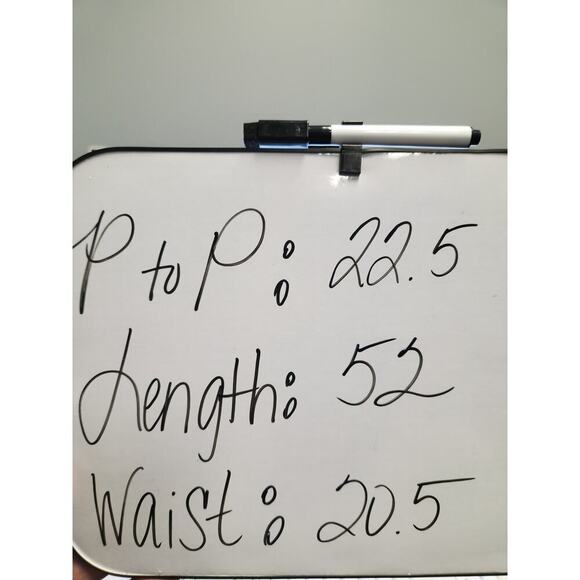 P to P: 22.5
Length: 52
Waist: 20.5